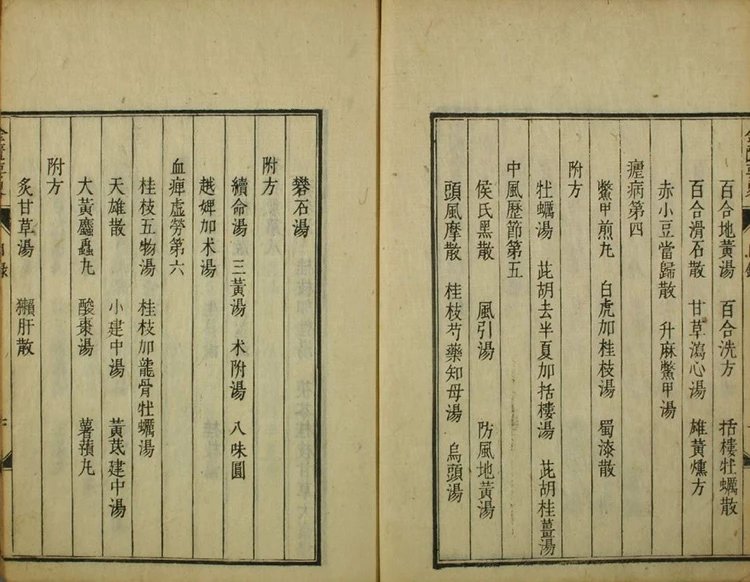 百合地黃湯 百合洗方 括樓牡蠣散
百合滑石散 甘草瀉心湯 雄黃燻方
赤小豆當歸散 升麻鱉甲湯
瘧病第四
鱉甲煎丸 白虎加桂枝湯 蜀漆散
附方
牡蠣湯 茈胡去半夏加括樓湯 茈胡桂薑湯
中風歷節第五
侯氏黑散 風引湯 防風地黃湯
頭風摩散 桂枝芍藥知母湯 烏頭湯
礬石湯
附方
續命湯 三黃湯 朮附湯 八味圓
越婢加朮湯
血痺虛勞第六
桂枝五物湯 桂枝加龍骨牡蠣湯
天雄散 小建中湯 黃芪建中湯
大黃䗪蟲丸 酸棗湯 薯蕷丸
附方
炙甘草湯 獺肝散